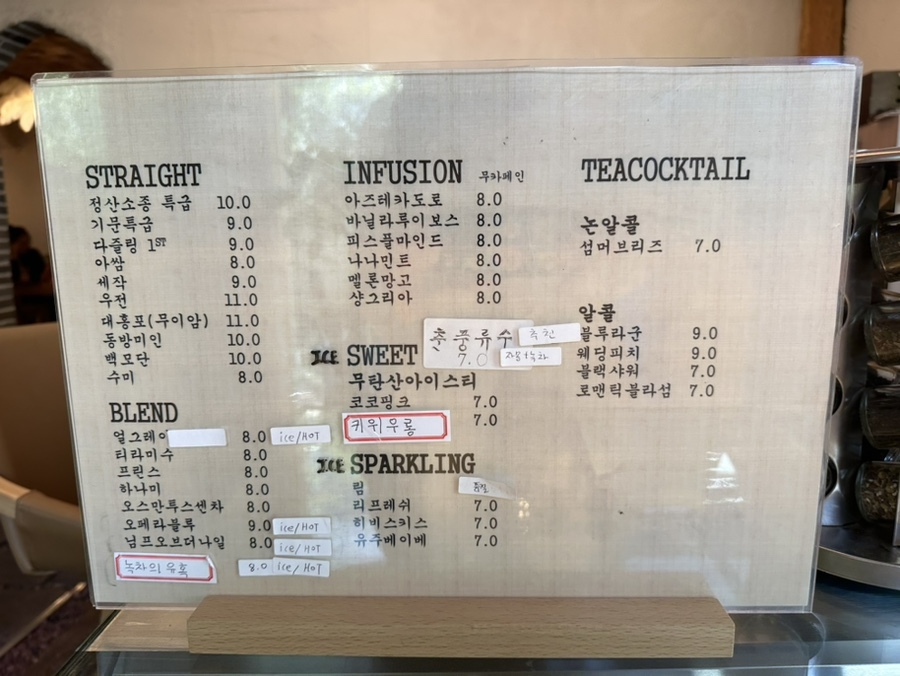 STRAIGHT
정산소종 특급 10.0
기문특급 9.0
다즐링 1ST 9.0
아쌈 8.0
세작 9.0
우전 11.0
대홍포(무이암) 11.0
동방미인 10.0
백모단 10.0
수미 8.0
BLEND
얼그레이 8.0 ice/HOT
티라미수 8.0
프린스 8.0
하나미 8.0
오스만투스센차 8.0
오페라블루 9.0 ice/HOT
님프오브더나일 8.0 ice/HOT
녹차의 유혹 8.0 ice/HOT
INFUSION 무카페인
아즈테카도로 8.0
바닐라루이보스 8.0
피스풀마인드 8.0
나나민트 8.0
멜론망고 8.0
샹그리아 8.0
ICE SWEET
춘풍류수 추천
7.0 자몽+녹차
무탄산아이스티
코코핑크 7.0
키위우롱 7.0
ICE SPARKLING
림 품절
리프레쉬 7.0
히비스키스 7.0
유주베이베 7.0
TEACOCKTAIL
논알콜
섬머브리즈 7.0
알콜
블루라군 9.0
웨딩피치 9.0
블랙샤워 7.0
로맨틱블라섬 7.0